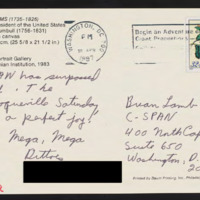 MS (1735-1826)
resident of the United States
umbull (1756-1831)
canvas
(25 5/8 x 21 1/2 in.)
Portrait Gallery
nian Institution, 1983
WASHINGTON, DC
PM
1997
Begin an Adventure
was surpassed
. The
oqueville Saturday
a perfect joy!
Mega, Mega
Dittos
Brian Lamb
C-SPAN
400 North Cap
Suite 650
Washington, D
20